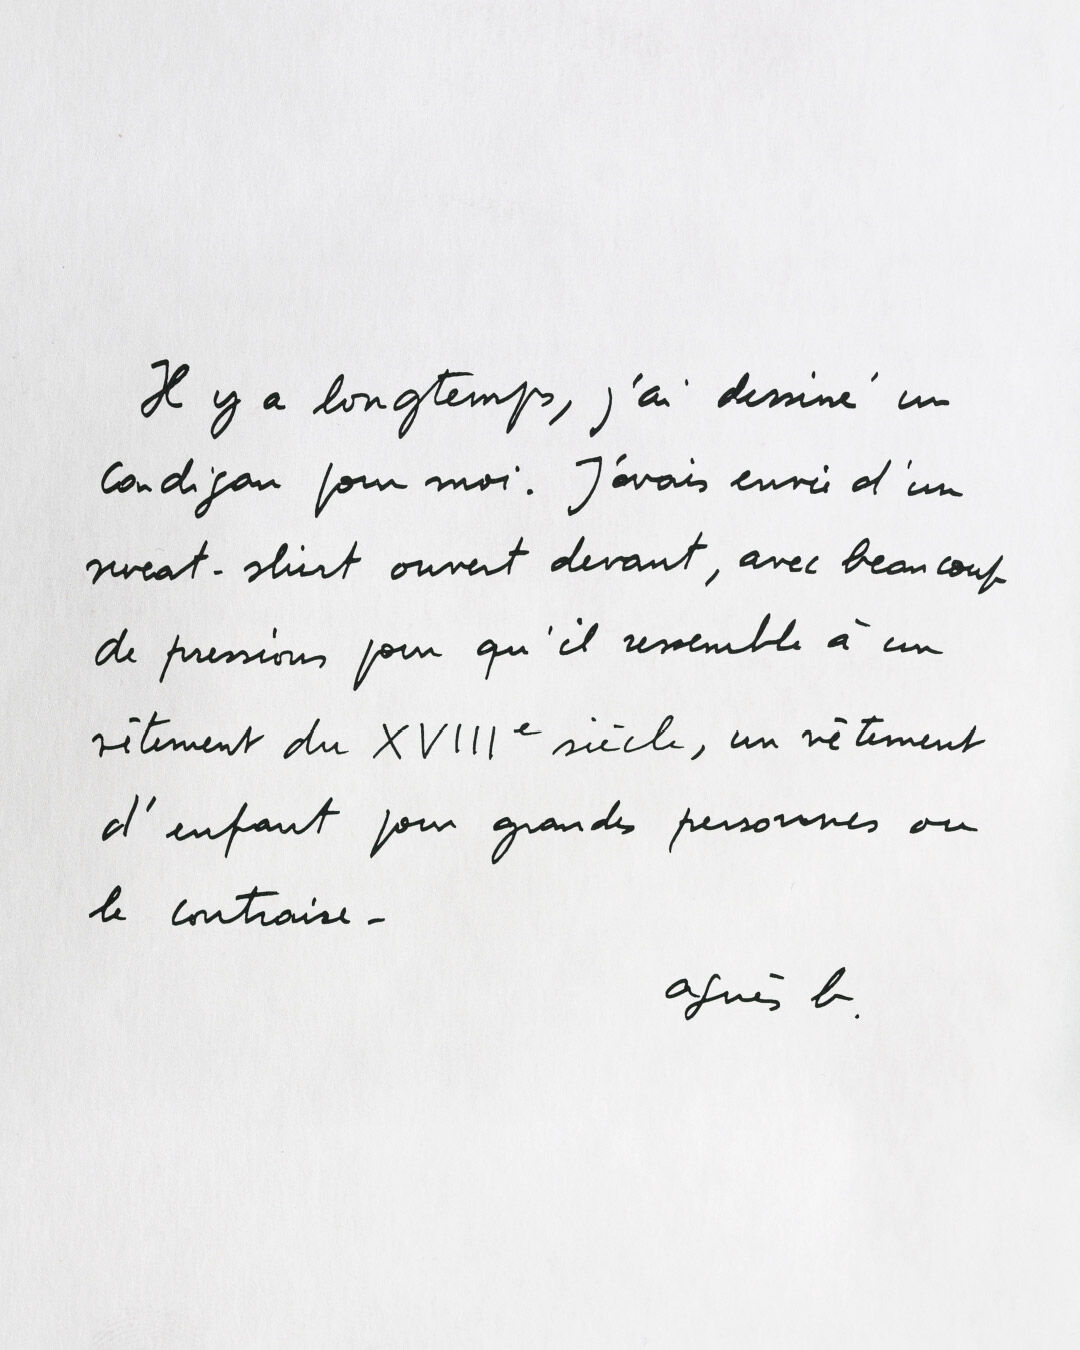 Il y a longtemps, j'ai dessiné un
cardigan pour moi. J'avais envie d'un
sweat-shirt ouvert devant, avec beaucoup
de pressions pour qu'il ressemble à un
vêtement du XVIIIe siècle, un vêtement
d'enfant pour grandes personnes ou
le contraire -
agnès b.